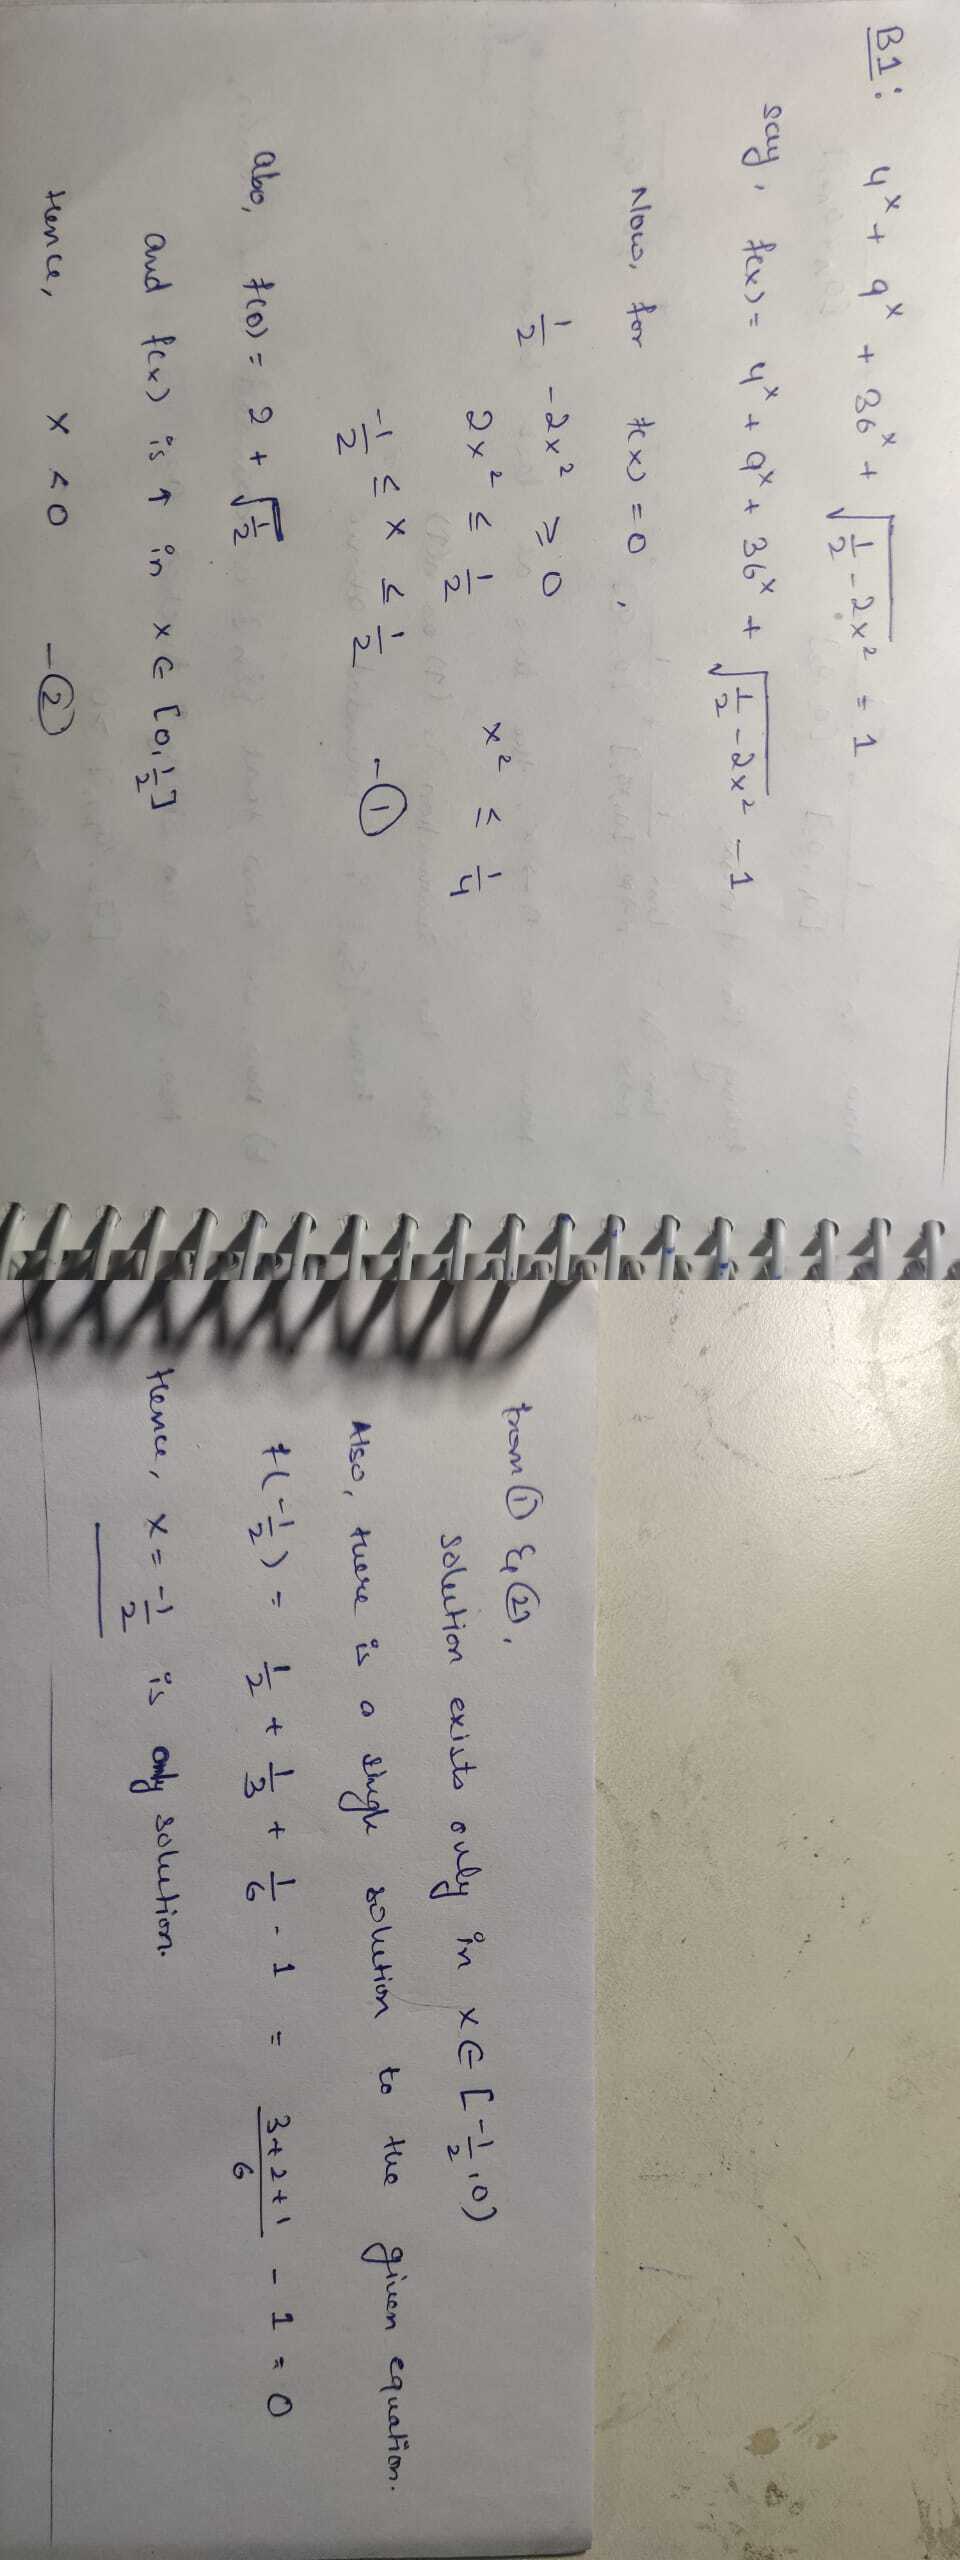 B1: 4^x + 9^x + 36^x + √(1/2 - 2x²) = 1
say, f(x) = 4^x + 9^x + 36^x + √(1/2 - 2x²) - 1
Now, for f(x) = 0,
1/2 - 2x² ≥ 0
2x² ≤ 1/2 x² ≤ 1/4
-1/2 ≤ x ≤ 1/2 - ①
also, f(0) = 2 + √(1/2)
and f(x) is ↑ in x ∈ [0, 1/2]
Hence, x < 0 - ②
from ① & ②,
solution exists only in x ∈ [-1/2, 0)
Also, there is a single solution to the given equation.
f(-1/2) = 1/2 + 1/3 + 1/6 - 1 = (3+2+1)/6 - 1 = 0
Hence, x = -1/2 is only solution.